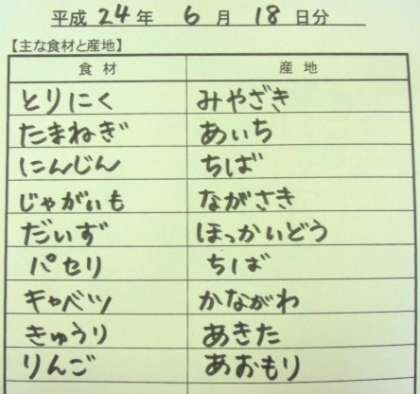 平成 24 年 6 月 18 日分
【主な食材と産地】
食材 産地
とりにく みやざき
たまねぎ あいち
にんじん ちば
じゃがいも ながさき
だいず ほっかいどう
パセリ ちば
キャベツ かながわ
きゅうり あきた
りんご あおもり